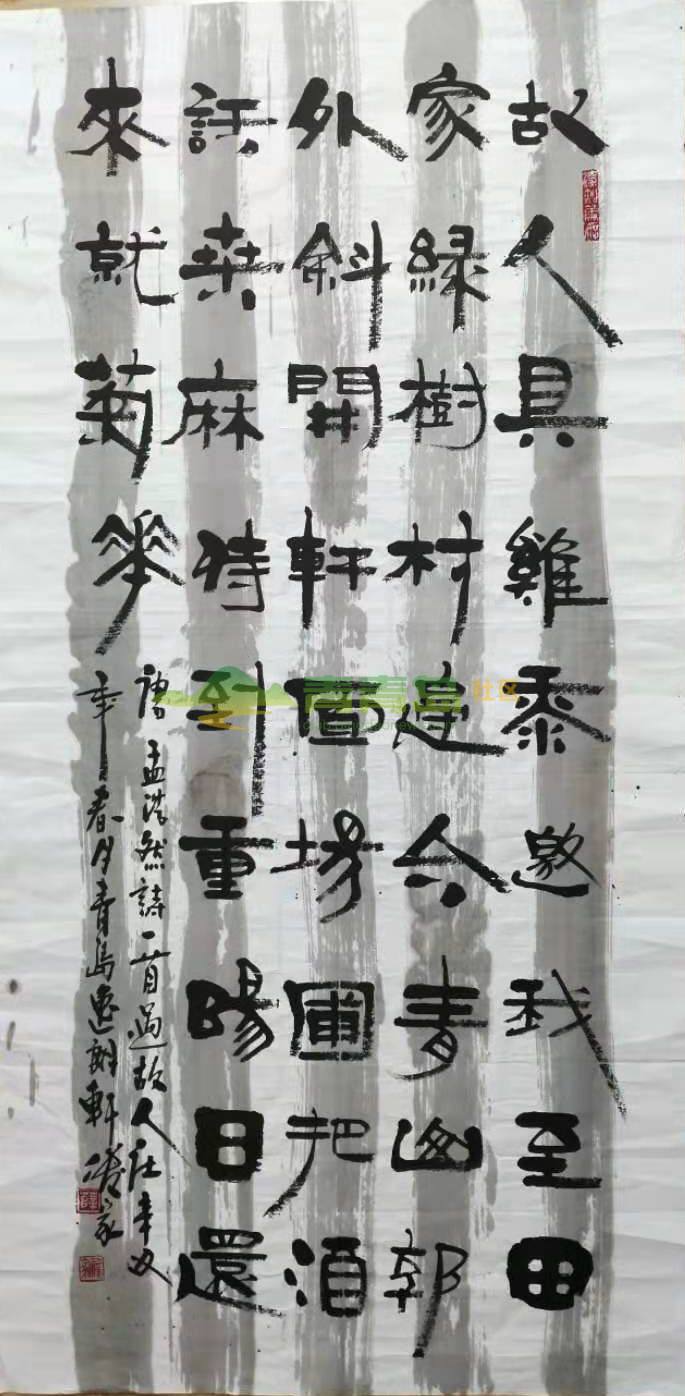 故人具雞黍邀我至田
家緑樹村邊合青山郭
外斜開軒面場圃把酒
話桒麻待到重陽日還
來就菊華
唐孟浩然詩一首過故人莊辛丑
年春月青島軒家
青青岛社区